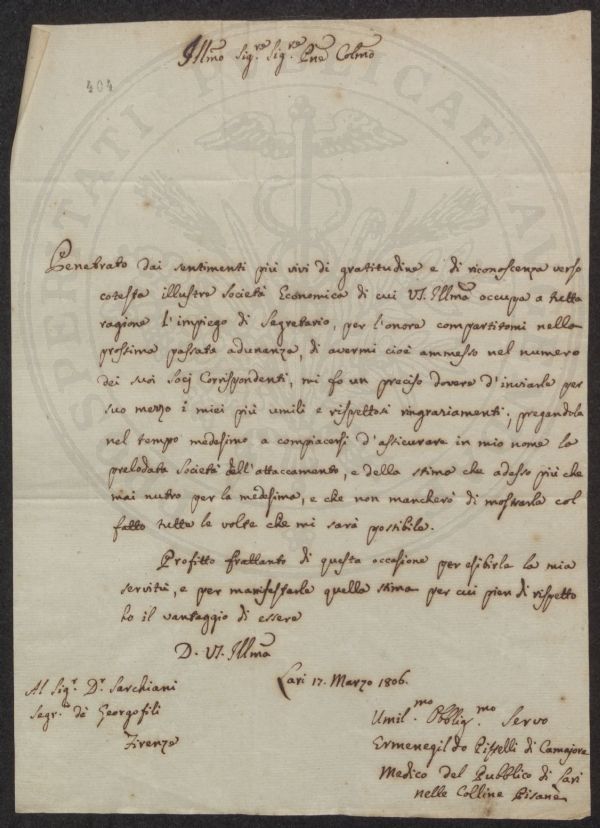 Illmo Sig.re Sig.re Pne Colmo
404
Penetrato dai sentimenti più vivi di gratitudine e di riconoscenza verso
cotesta illustre Società Economica di cui VS. Illma occupa a tutta
ragione l'impiego di Segretario, per l'onore compartitomi nella
prossima passata adunanza, di avermi cioè ammesso nel numero
dei suoi Socj Corrispondenti, mi fo un preciso dovere d'inviarle per
suo mezzo i miei più umili e rispettosi ringraziamenti; pregandola
nel tempo medesimo a compiacersi d'assicurare in mio nome la
prelodata Società dell'attaccamento, e della stima che adesso più che
mai nutro per la medesima, e che non mancherò di mostrarla col
fatto tutte le volte che mi sarà possibile.
Profitto frattanto di questa occasione per esibirle la mia
servitù, e per manifestarle quella stima per cui pien di rispetto
ho il vantaggio di essere
D. VS. Illma
Lari 17. Marzo 1806.
Al Sig.r D.r Sarchiani
Segr.o de Georgofili
Firenze
Umil.mo Obblig.mo Servo
Ermenegildo Pistelli di Camajore
Medico del Pubblico di Lari
nelle Colline Pisane
PROSPERITATI PUBLICAE AU